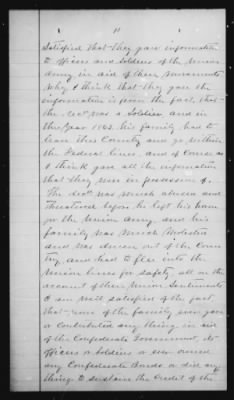 11
Satisfied that they gave information
to officers and Soldiers of the Union
Army in aid of their movements
why I think that they gave the
information is from the fact, that
the dec'd was a Soldier and in
the year 1863 his family had to
leave this County and go within
the Federal lines, and of course as
I think gave all the information
that they was in possession of.
The dec'd was much abused and
threatened before he left his home
for the Union Army and his
family was much molested
and was driven out of the Coun
try, and had to flee into the
Union lines for safety, all on the
account of their Union Sentiments
I am well satisfied of the fact
that none of the family ever gave
or contributed any thing in aid
of the Confederate Government, its
officers or Soldiers or ever owned
any Confederate Bonds or did any
thing to sustain the Credit of the